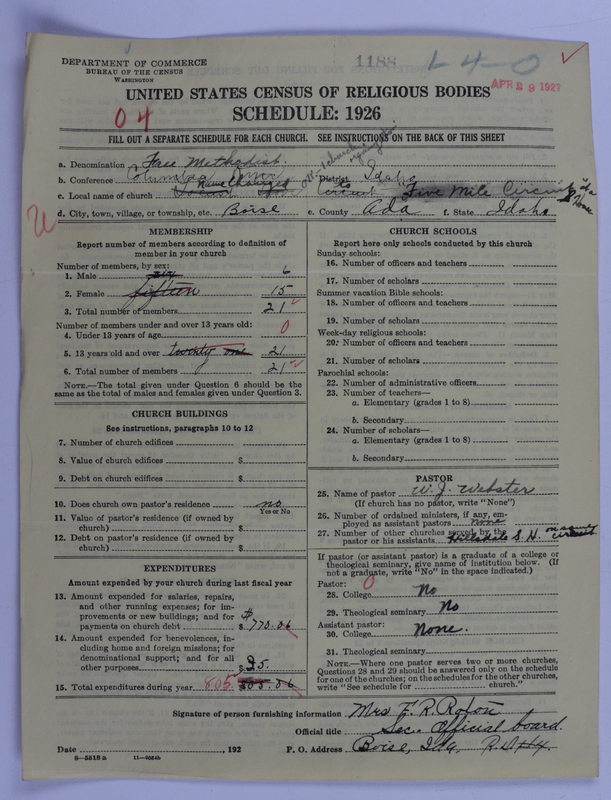 DEPARTMENT OF COMMERCE
BUREAU OF THE CENSUS
WASHINGTON
1188
L-4-0
APR 29 1927
UNITED STATES CENSUS OF RELIGIOUS BODIES
SCHEDULE: 1926
04
FILL OUT A SEPARATE SCHEDULE FOR EACH CHURCH. SEE INSTRUCTIONS ON THE BACK OF THIS SHEET
a. Denomination Free Methodist.
b. Conference Columbia River District Idaho
c. Local name of church Name Changed to Five Mile Circuit
d. City, town, village, or township, etc. Boise e. County Ada f. State Idaho
MEMBERSHIP
Report number of members according to definition of member in your church
Number of members, by sex:
1. Male six 6
2. Female fifteen 15
3. Total number of members 21
Number of members under and over 13 years old:
4. Under 13 years of age 0
5. 13 years old and over twenty one 21
6. Total number of members 21
NOTE.—The total given under Question 6 should be the same as the total of males and females given under Question 3.
CHURCH BUILDINGS
See instructions, paragraphs 10 to 12
7. Number of church edifices
8. Value of church edifices $
9. Debt on church edifices $
10. Does church own pastor's residence no
Yes or No
11. Value of pastor's residence (if owned by church) $
12. Debt on pastor's residence (if owned by church) $
EXPENDITURES
Amount expended by your church during last fiscal year
13. Amount expended for salaries, repairs, and other running expenses; for improvements or new buildings; and for payments on church debt $ 770.06
14. Amount expended for benevolences, including home and foreign missions; for denominational support; and for all other purposes $ 35.
15. Total expenditures during year 805.06
CHURCH SCHOOLS
Report here only schools conducted by this church
Sunday schools:
16. Number of officers and teachers
17. Number of scholars
Summer vacation Bible schools:
18. Number of officers and teachers
19. Number of scholars
Week-day religious schools:
20. Number of officers and teachers
21. Number of scholars
Parochial schools:
22. Number of administrative officers
23. Number of teachers—
a. Elementary (grades 1 to 8)
b. Secondary
24. Number of scholars—
a. Elementary (grades 1 to 8)
b. Secondary
PASTOR
25. Name of pastor W. J. Webster
(If church has no pastor, write "None")
26. Number of ordained ministers, if any, employed as assistant pastors none
27. Number of other churches served by the pastor or his assistants Hillsdale S. H. on circuit
If pastor (or assistant pastor) is a graduate of a college or theological seminary, give name of institution below. (If not a graduate, write "No" in the space indicated.)
Pastor: 0
28. College No
29. Theological seminary No
Assistant pastor:
30. College None.
31. Theological seminary
NOTE.—Where one pastor serves two or more churches, Questions 28 and 29 should be answered only on the schedule for one of the churches; on the schedules for the other churches, write "See schedule for church."
Signature of person furnishing information Mrs F. R. Roton
Official title Sec. Official board.
Date , 192 P. O. Address Boise, Ida. R.D. #4.